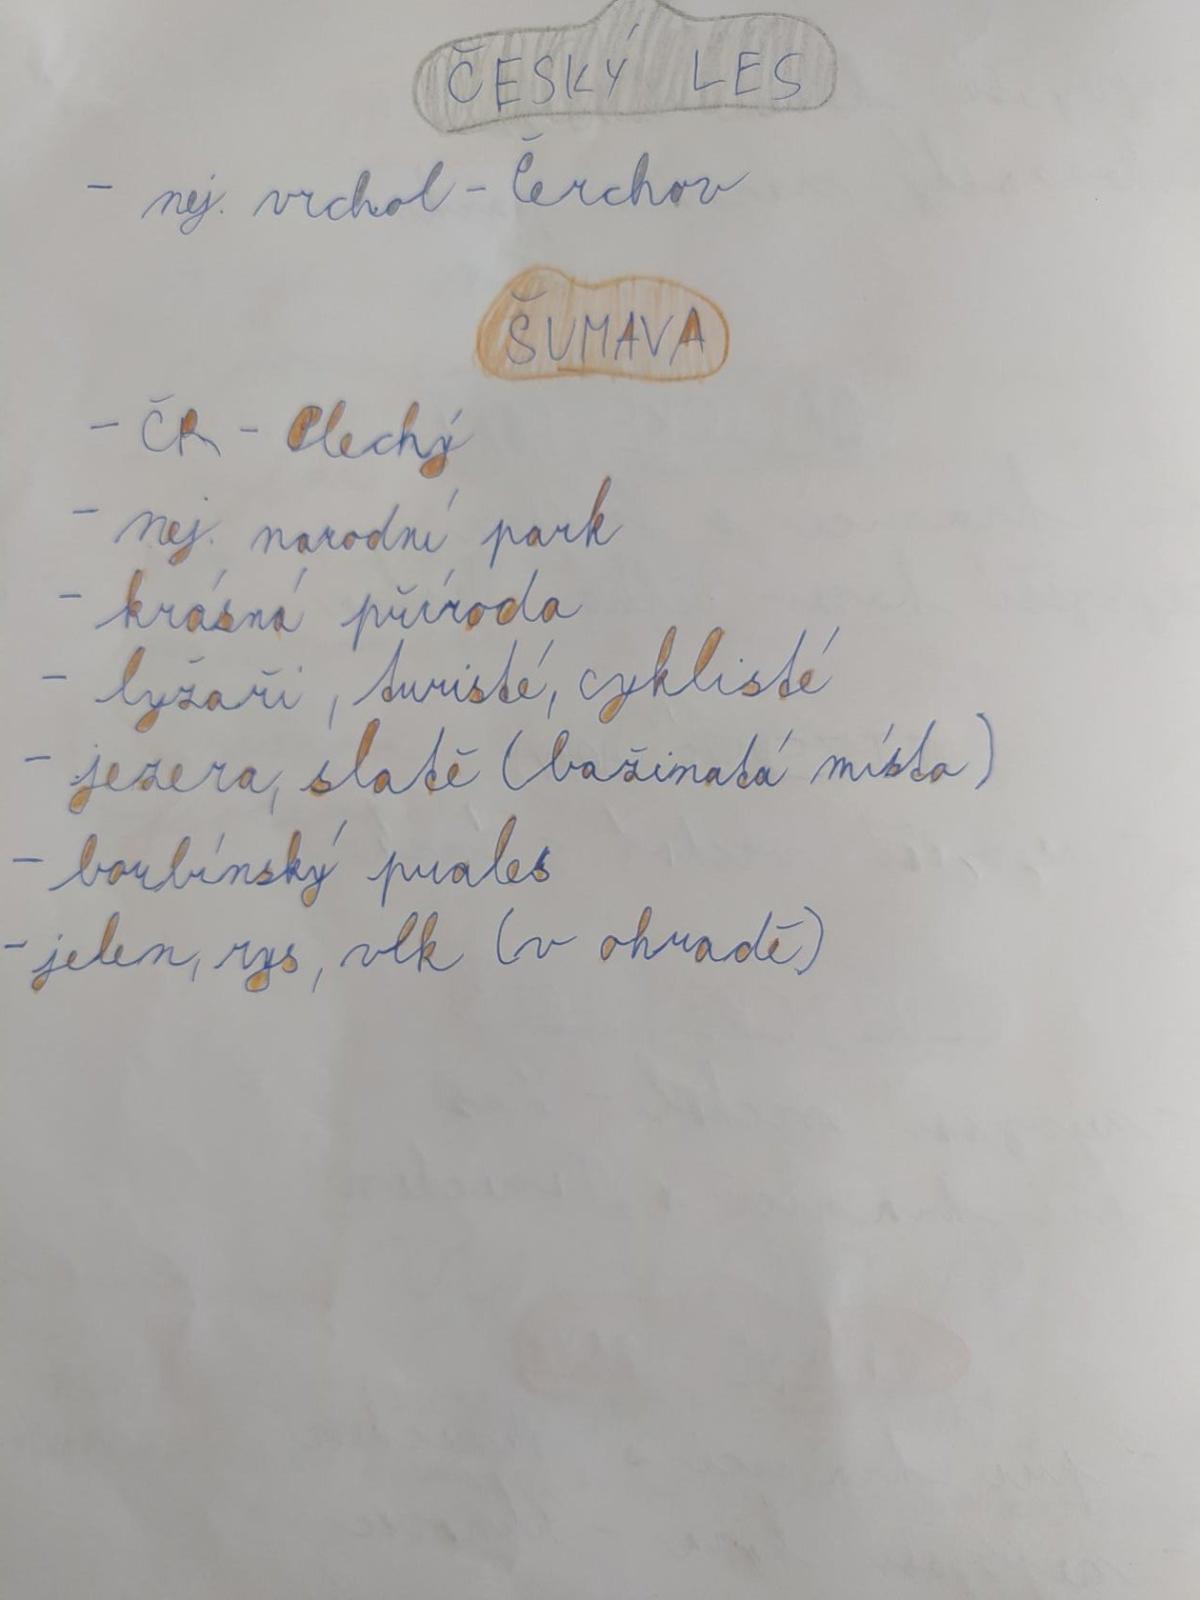 ČESKÝ LES
- nej. vrchol - Čerchov
ŠUMAVA
- ČR - Plechý
- nej. narodní park
- krásná příroda
- lyžaři, turisté, cyklisté
- jezera, slatě (bažinatá místa)
- borbínský prales
- jelen, rys, vlk (v ohradě)